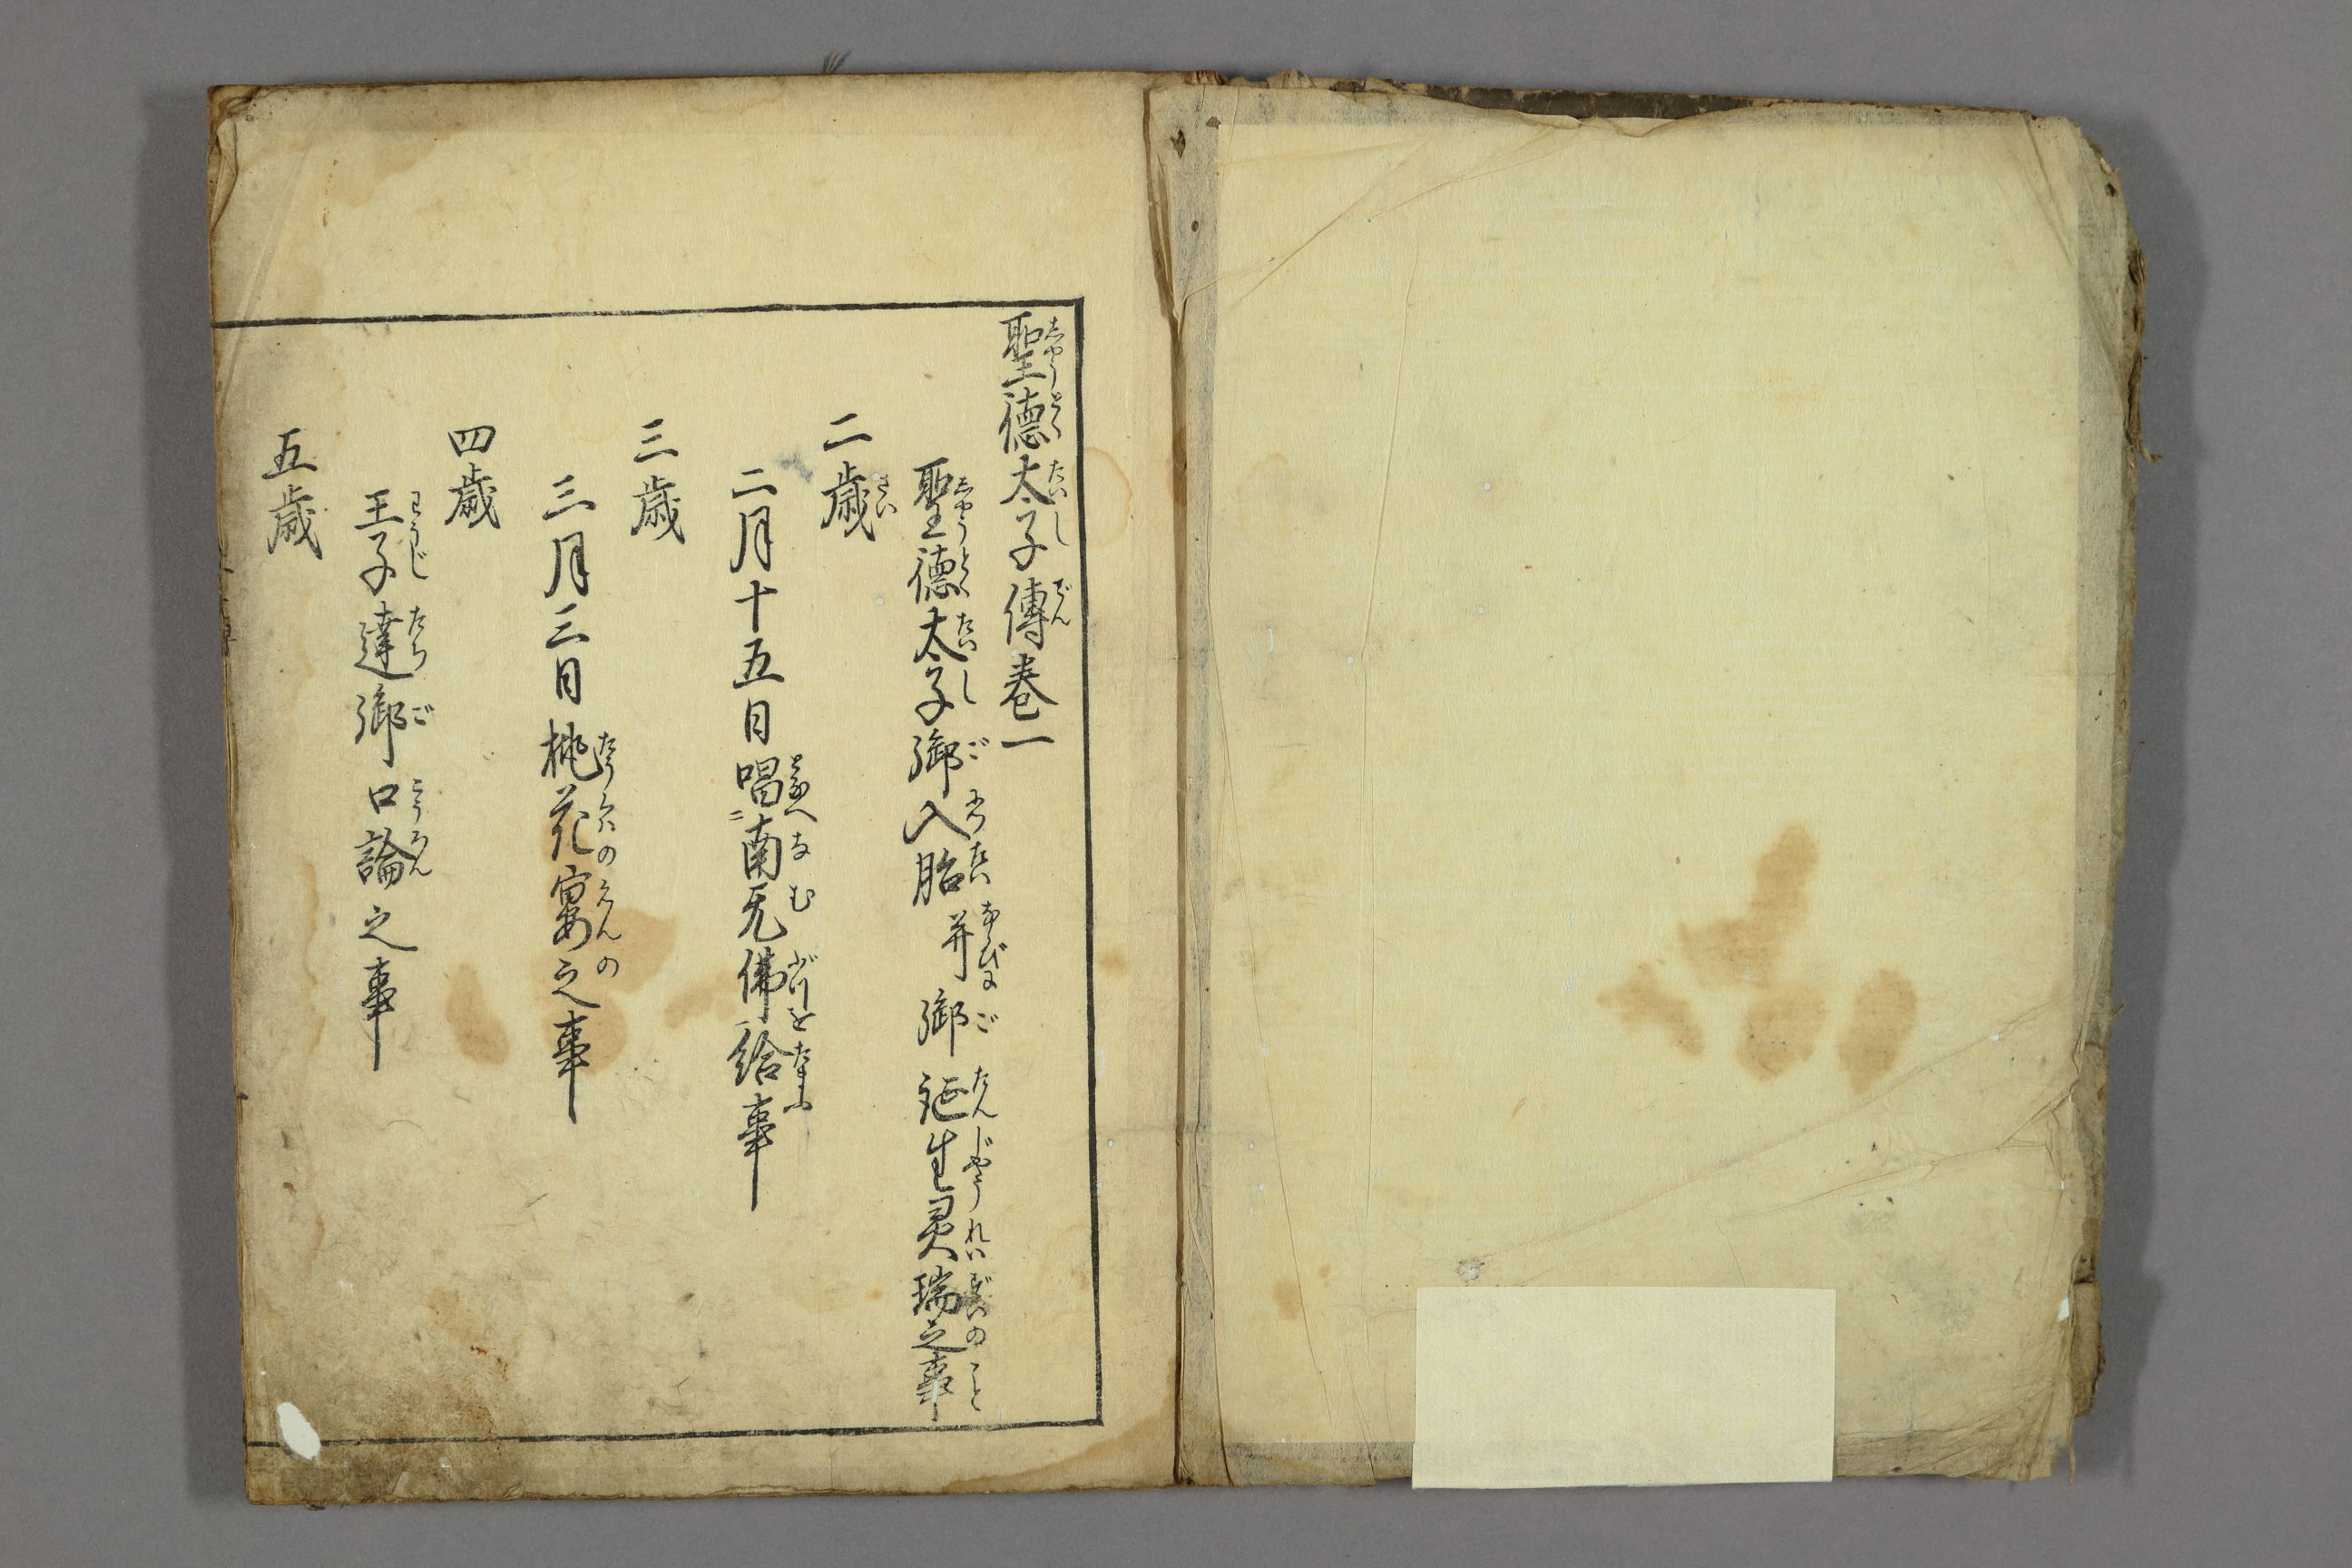 聖德太子傳卷一
聖德太子御入胎并御誕生灵瑞之事
二歳
二月十五日唱南无佛給事
三歳
三月三日桃花宴之事
四歳
王子達御口論之事
五歳